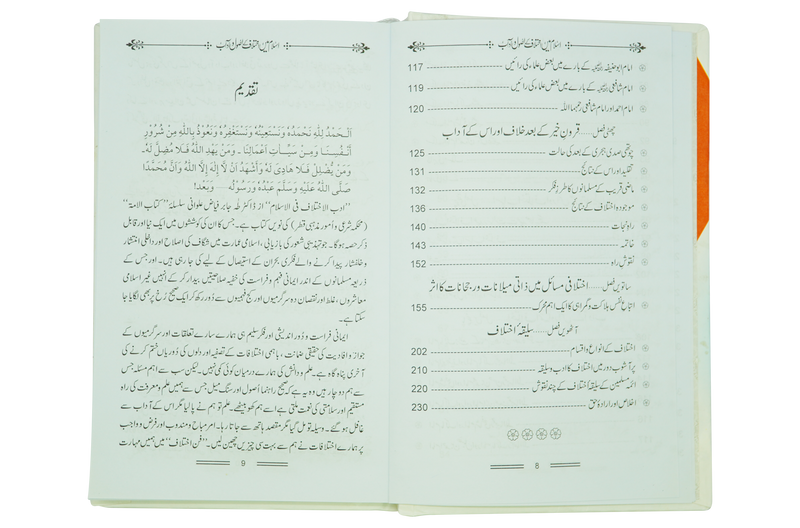 اسلام میں اختلاف کے اصول و آداب
امام ابوحنیفہ کے بارے میں بعض علماء کی رائیں 117
امام شافعی کے بارے میں بعض علماء کی رائیں 119
امام احمد اور امام شافعی رحمہما اللہ 120
چھٹی فصل ..... قرونِ خیر کے بعد خلاف اور اس کے آداب
چوتھی صدی ہجری کے بعد کی حالت 125
تقلید اور اس کے نتائج 131
ماضی قریب کے مسلمانوں کا طرزِ فکر 132
موجودہ اختلاف کے نتائج 136
راہِ نجات 140
خاتمہ 143
نقوشِ راہ 152
ساتویں فصل ..... اختلافی مسائل میں ذاتی میلانات و رجحانات کا اثر
اتباعِ نفس ہلاکت و گمراہی کا ایک اہم محرک 155
آٹھویں فصل ..... سلیقۂ اختلاف
اختلاف کے انواع و اقسام 202
پر آشوب دور میں اختلاف کا ادب و سلیقہ 210
ائمہ مسلمین کے سلیقۂ اختلاف کے چند نقوش 220
اخلاص اور ارادۂ حق 230
8
اسلام میں اختلاف کے اصول و آداب
تقدیم
اَلْحَمْدُ لِلّٰهِ نَحْمَدُهُ وَنَسْتَعِيْنُهُ وَنَسْتَغْفِرُهُ وَنَعُوْذُ بِاللّٰهِ مِنْ شُرُوْرِ
اَنْفُسِنَا وَمِنْ سَيِّاٰتِ اَعْمَالِنَا ۔ وَمَنْ يَهْدِ اللّٰهُ فَلَا مُضِلَّ لَهُ ۔
وَمَنْ يُّضْلِلْ فَلَا هَادِىَ لَهُ وَاَشْهَدُ اَنْ لَّا اِلٰهَ اِلَّا اللّٰهُ وَاَنَّ مُحَمَّدًا
صَلَّى اللّٰهُ عَلَيْهِ وَسَلَّمَ عَبْدُهُ وَرَسُوْلُهُ ..... وَبَعْد!
”ادب الاختلاف فی الاسلام“ از ڈاکٹر طہ جابر فیاض علوانی سلسلۂ ”کتاب الامۃ“
(محکمہ شرعی و امور مذہبی قطر) کی نویں کتاب ہے۔ جس کا ان کی کوششوں میں ایک نیا اور قابل
ذکر حصہ ہوگا۔ جو تہذیبی شعور کی بازیابی، اسلامی عمارت میں شگاف کی اصلاح اور داخلی انتشار
و خلفشار پیدا کرنے والے فکری بحران کے استیصال کے لیے کی جا رہی ہیں۔ اور جس کے
ذریعہ مسلمانوں کے اندر ایمانی فہم و فراست کی خفیہ صلاحیتیں بیدار کر کے انہیں غیر اسلامی
معاشروں، غلط اور نقصان دہ سرگرمیوں اور کج فہمیوں سے دور رکھ کر ایک صحیح رخ پر بھی لگایا جا
سکتا ہے۔
ایمانی فراست و دور اندیشی اور فکر سلیم ہی ہمارے سارے تعلقات اور سرگرمیوں کے
جواز و افادیت کی حقیقی ضمانت، باہمی اختلافات کے تصفیہ اور دلوں کی دوریاں ختم کرنے کی
آخری پناہ گاہ ہے۔ علم و دانش کی ہمارے درمیان کوئی کمی نہیں۔ لیکن سب سے اہم مسئلہ جس
سے ہم دوچار ہیں وہ یہ ہے کہ صحیح راہنما اصول اور سنگ میل جس سے ہمیں علم و معرفت کی راہ
مستقیم اور سلامتی کی نعمت ملتی ہے اسے ہم کھو بیٹھے۔ علم تو ہم نے پا لیا مگر اس کے آداب سے
غافل ہو گئے۔ وسیلہ تو مل گیا مگر مقصد ہاتھ سے جاتا رہا۔ امر مباح و مندوب اور فرض و واجب
پر ہمارے اختلافات نے ہم سے بہت سی چیزیں چھین لیں۔ ”فن اختلاف“ میں ہمیں مہارت
9